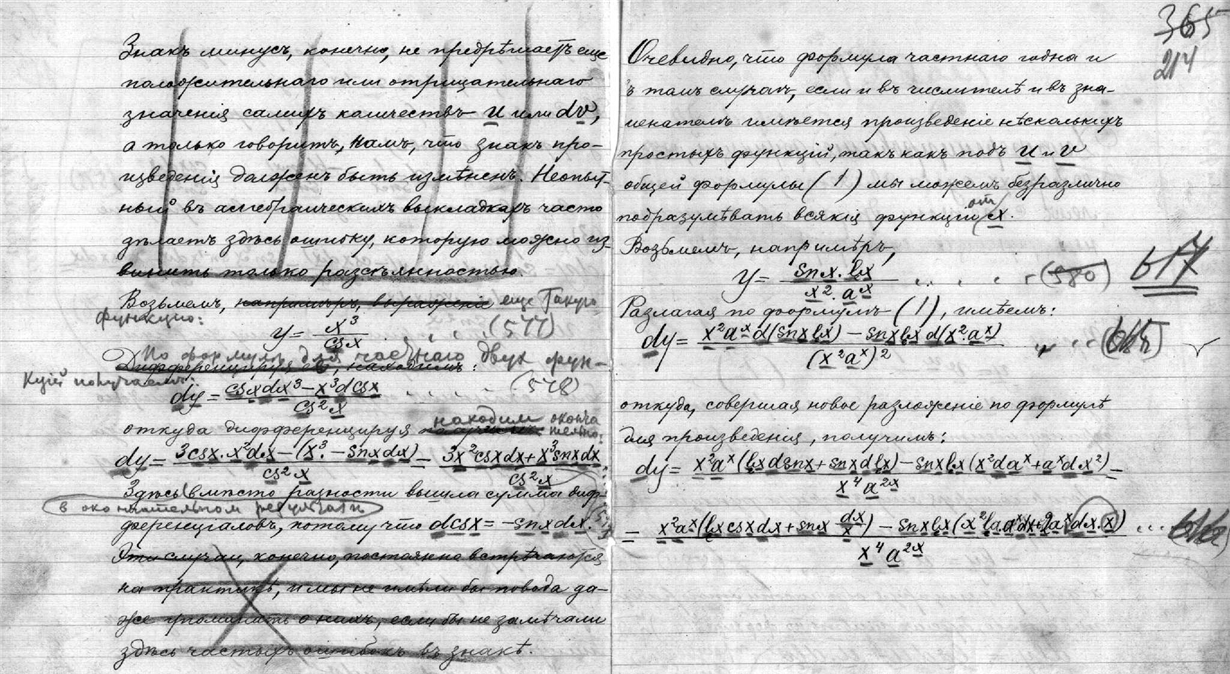 Знакъ минусъ, конечно, не предрѣшаетъ еще
положительнаго или отрицательнаго
значенія самихъ количествъ u или dv,
а только говоритъ намъ, что знакъ про-
изведенія долженъ быть измѣненъ. Неопыт-
ный въ алгебраическихъ выкладкахъ часто
дѣлаетъ здѣсь ошибку, которую можно из-
винить только разсѣянностью
Возьмемъ, напримѣръ, выраженіе еще такую
функцію:
y = x³/csx . . . (577)
По формулѣ для частнаго двухъ функ-
Дифференцируя ее, находимъ:
кцій получаемъ:
dy = csxdx³ – x³dcsx / cs²x . . . . . (578)
откуда дифференцируя находимъ оконча
тельно:
dy = 3csx.x²dx – (x³. – snxdx) / cs²x = 3x²csxdx + x³snxdx / cs²x
Здѣсь вмѣсто разности вышла сумма диф-
в окончательном результатѣ
ференціаловъ, потому что dcsx = –snxdx.
Эти случаи, конечно, постоянно встрѣчаются
на практикѣ, и мы не имѣли бы повода да-
же упоминать о нихъ, если бы не замѣчали
здѣсь частыхъ ошибокъ въ знакѣ.
365
214
Очевидно, что формула частнаго годна и
въ томъ случаѣ, если и въ числителѣ и въ зна-
менателѣ имѣется произведеніе нѣсколькихъ
простыхъ функцій, такъ какъ подъ u и v
общей формулы (1) мы можемъ безразлично
подразумѣвать всякія функціи от x.
Возьмемъ, напримѣръ,
y = snx.lx / x².aˣ . . . . (580) 617
Разлагая по формулѣ (1), имѣемъ:
dy = x²aˣd(snxlx) – snxlxd(x².aˣ) / (x²aˣ)² . .
откуда, совершая новое разложеніе по формулѣ
для произведенія, получимъ:
dy = x²aˣ(lxdsnx + snxdlx) – snxlx(x²daˣ + aˣdx²) / x⁴a²ˣ =
= x²aˣ(lxcsxdx + snx dx/x) – snxlx(x²la.aˣdx + 2aˣdx.x) / x⁴a²ˣ ...